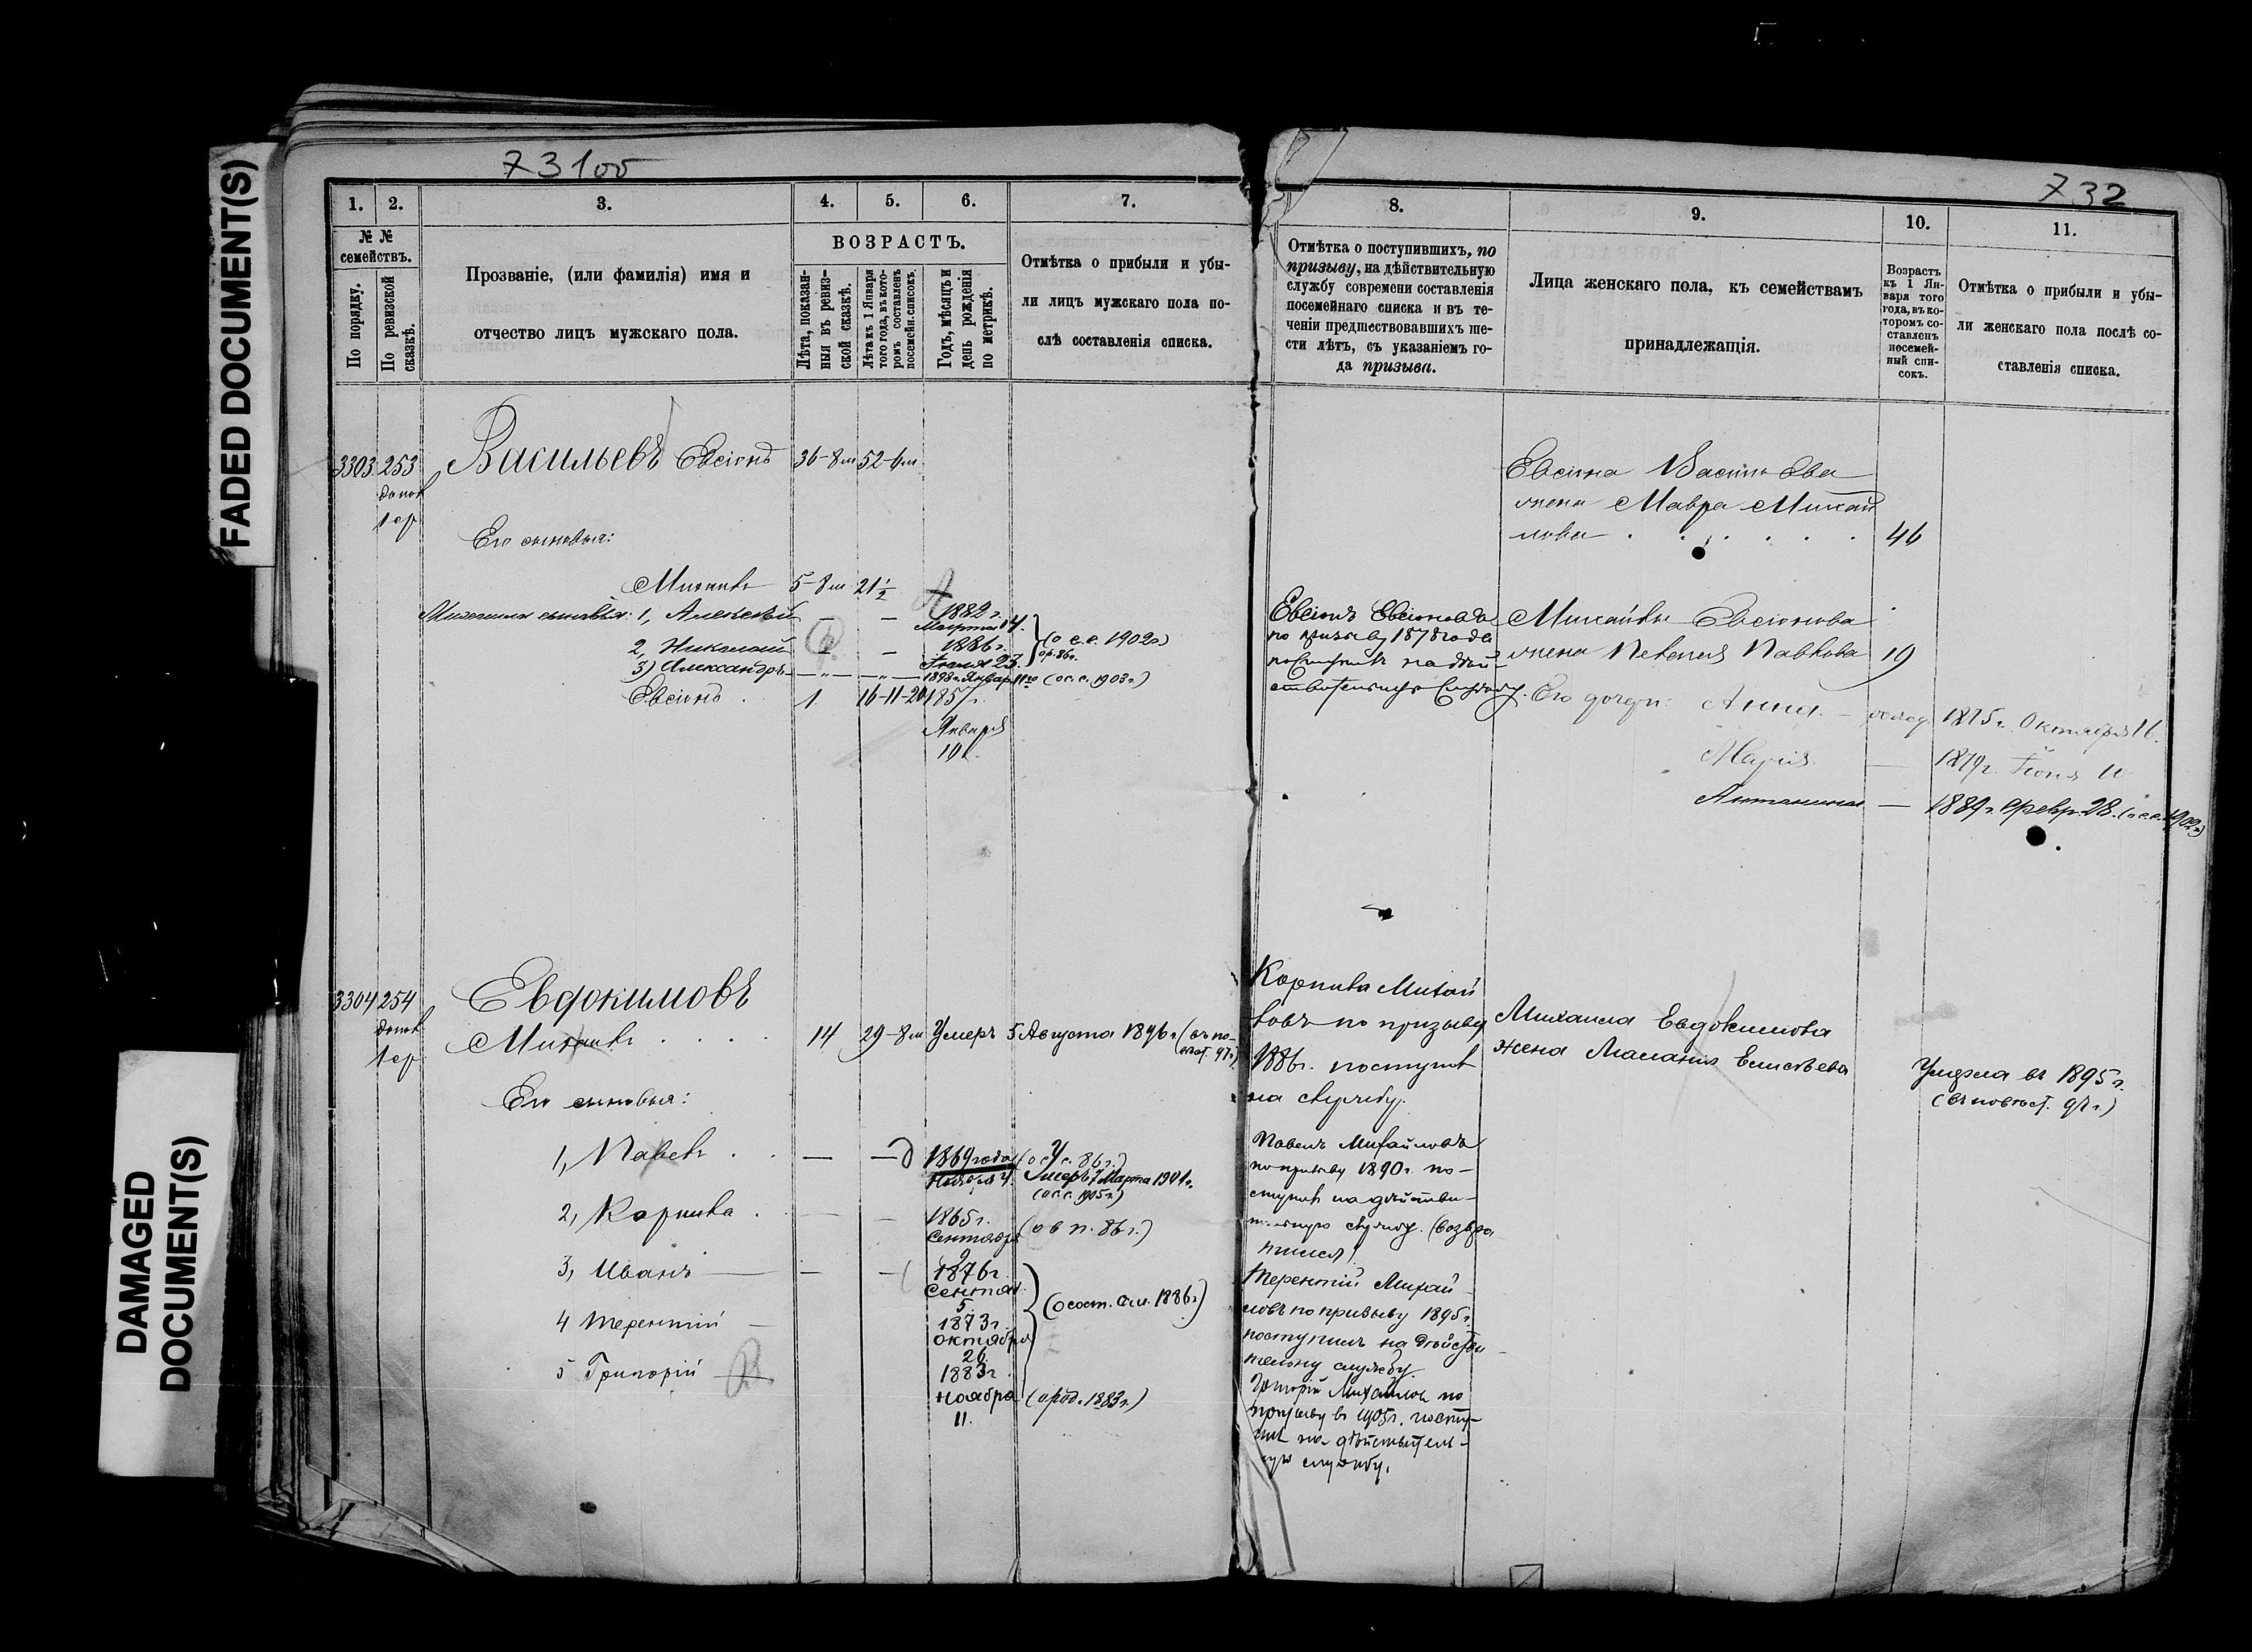 FADED DOCUMENT(S)
DAMAGED
DOCUMENT(S)
73100
732
1.
2.
3.
4.
5.
6.
7.
№ №
семействъ.
По порядку.
По ревизской
сказкѣ.
Прозваніе, (или фамилія) имя и
отчество лицъ мужскаго пола.
ВОЗРАСТЪ.
Лѣта, показан-
ныя въ ревиз-
ской сказкѣ.
Лѣта къ 1 Января
того года, въ кото-
ромъ составленъ
посемейн. списокъ.
Годъ, мѣсяцъ и
день рожденія
по метрикѣ.
Отмѣтка о прибыли и убы-
ли лицъ мужскаго пола по-
слѣ составленія списка.
3303 253
допол
1 ср
Васильевъ Евсіонъ 36-8м 52-6м
Его сыновья:
Михаилъ 5-8м 21 1/2
Михаила сыновья: 1, Алексѣй — — 1882 г.
Марта 14.
2, Николай — — 1886 г.
(о с. с. 1902г)
ор. 86г.
3) Александръ 1898 г. Январ. 11го (ос. с. 1903 г.)
Евсіонъ . 1 16-11-20 1857 г.
Января
10
3304 254
допол
1 ср
Евдокимовъ
Михаилъ . . . . 14 29-8м Умеръ 5 Августа 1896 г (въ по-
Его сыновья:
1, Павелъ . . — — 1869 года (о с. с. 86 г.)
Ноября 4. Умеръ 7 Марта 1904г.
(ос. с. 1905 г.)
2, Корнила . — — 1865 г. (о в п. 86 г.)
Сентября
9
3, Иванъ — — — 1876 г.
Сентяб.
5.
(о сост. сем. 1886 г)
4 Терентій — 1873 г.
октября
26
5 Григорій — 1883 г
Ноября (о род. 1883 г.)
11.
8.
9.
10.
11.
Отмѣтка о поступившихъ, по
призыву, на дѣйствительную
службу современи составленія
посемейнаго списка и въ те-
ченіи предшествовавшихъ ше-
сти лѣтъ, съ указаніемъ го-
да призыва.
Лица женскаго пола, къ семействамъ
принадлежащія.
Возрастъ
къ 1 Ян-
варя того
года, въ ко-
торомъ со-
ставленъ
посемей-
ный спи-
сокъ.
Отмѣтка о прибыли и убы-
ли женскаго пола послѣ со-
ставленія списка.
Евсіона Васильева
жена Мавра Михай
лова . . . . . . 46
Евсіонъ Евсіоновъ
по призыву 1878 года
поступилъ на дѣй-
ствительную службу.
Михайлы Евсіонова
жена Пелагея Павлова 19
Его дочери: Анна — 1875 г. Октября 16.
Марія. — 1879 г. Іюня 10
Антонина — 1889 г. февр. 28. (о с. с. 1902г)
Корнила Михай
ловъ по призыву
1886 г. поступил
на службу.
Павелъ Михайловъ
по призыву 1890 г. по-
ступилъ на дѣйстви-
тельную службу. (возвра
тился)
Терентій Михай
ловъ по призыву 1895 г.
поступилъ на дѣйстви
тельну службу
Григорій Михайлов по
призыву въ 1905 г. посту-
пил на дѣйствитель-
ную службу.
Михаила Евдокимова
жена Маланья Елисѣева
Умерла въ 1895 г.